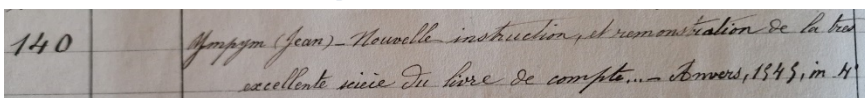 140 Ympym (Jean) _ Nouvelle instruction, et remonstration de la tres
excellente sciēce du livre de compte... _ Anvers, 1543, in 4°